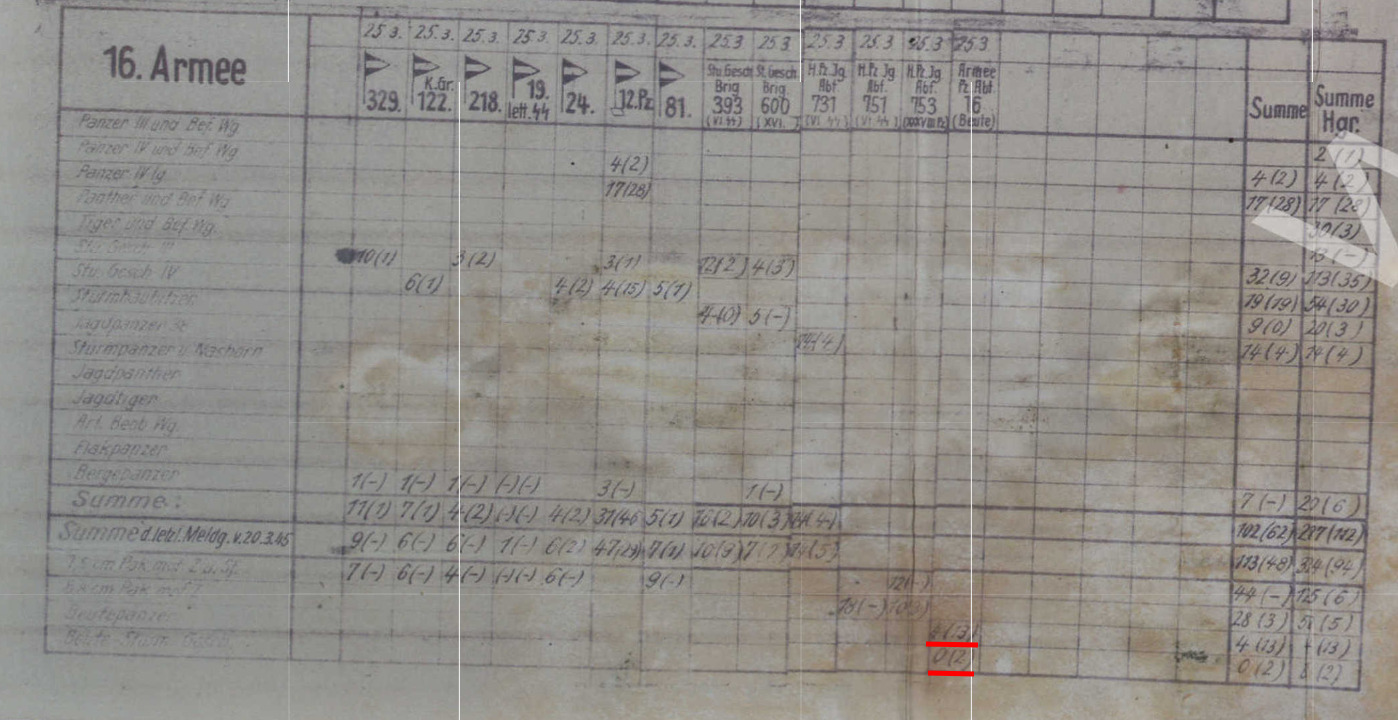 25.3. 25.3. 25.3. 25.3. 25.3. 25.3. 25.3. 25.3 25.3 25.3 25.3 25.3 25.3
16. Armee 329. K.Gr. 122. 218. 19. lett. 44 24. 12.Pz 81. Stu.Gesch Brig 393 (VI. 44) St. Gesch. Brig 600 (XVI. ) H.Pz Jg Abt 731 (VI 44) H.Pz Jg Abt. 751 (VI 44) H.Pz Jg Abt. 753 (XXXVIII Pz) Armee Pz Abt. 16 (Beute) Summe Summe Hgr.
Panzer III und Bef. Wg 2 (1)
Panzer IV und Bef Wg 4(2) 4(2) 4(2)
Panzer IV lg 17(28) 17(28) 17(28)
Panther und Bef Wg 30(3)
Tiger und Bef. Wg. 13 (-)
Stu. Gesch III 10(1) 3(2) 3(1) 12(2) 4(3) 32(9) 113(35)
Stu. Gesch IV 6(1) 4(2) 4(15) 5(1) 19(19) 54(30)
Sturmhaubitzen 4(0) 5(-) 9(0) 20(3)
Jagdpanzer 38 14(4) 14(4) 14(4)
Sturmpanzer u. Nashorn
Jagdpanther
Jagdtiger
Art. Beob Wg.
Flakpanzer
Bergepanzer 1(-) 1(-) 1(-) (-)(-) 3(-) 1(-) 7(-) 20(6)
Summe: 11(1) 7(1) 4(2) (-)(-) 4(2) 31(46 5(1) 16(2) 10(3) 14(4) 102(62) 287(112)
Summe d. letzt. Meldg. v. 20.3.45 9(-) 6(-) 6(-) 1(-) 6(2) 47(29) 7(1) 10(9) 14(5) 113(48) 324(94)
7,5 cm Pak mot Z u. Sf. 7(-) 6(-) 4(-) (-)(-) 6(-) 9(-) 12(-) 44(-) 125(6)
8,8 cm Pak mot Z 18(-) 10(3) 28(3) 51(5)
Beutepanzer 4(13) 4(13) (13)
Beute Sturm Gesch 0(2) 0(2) (2)